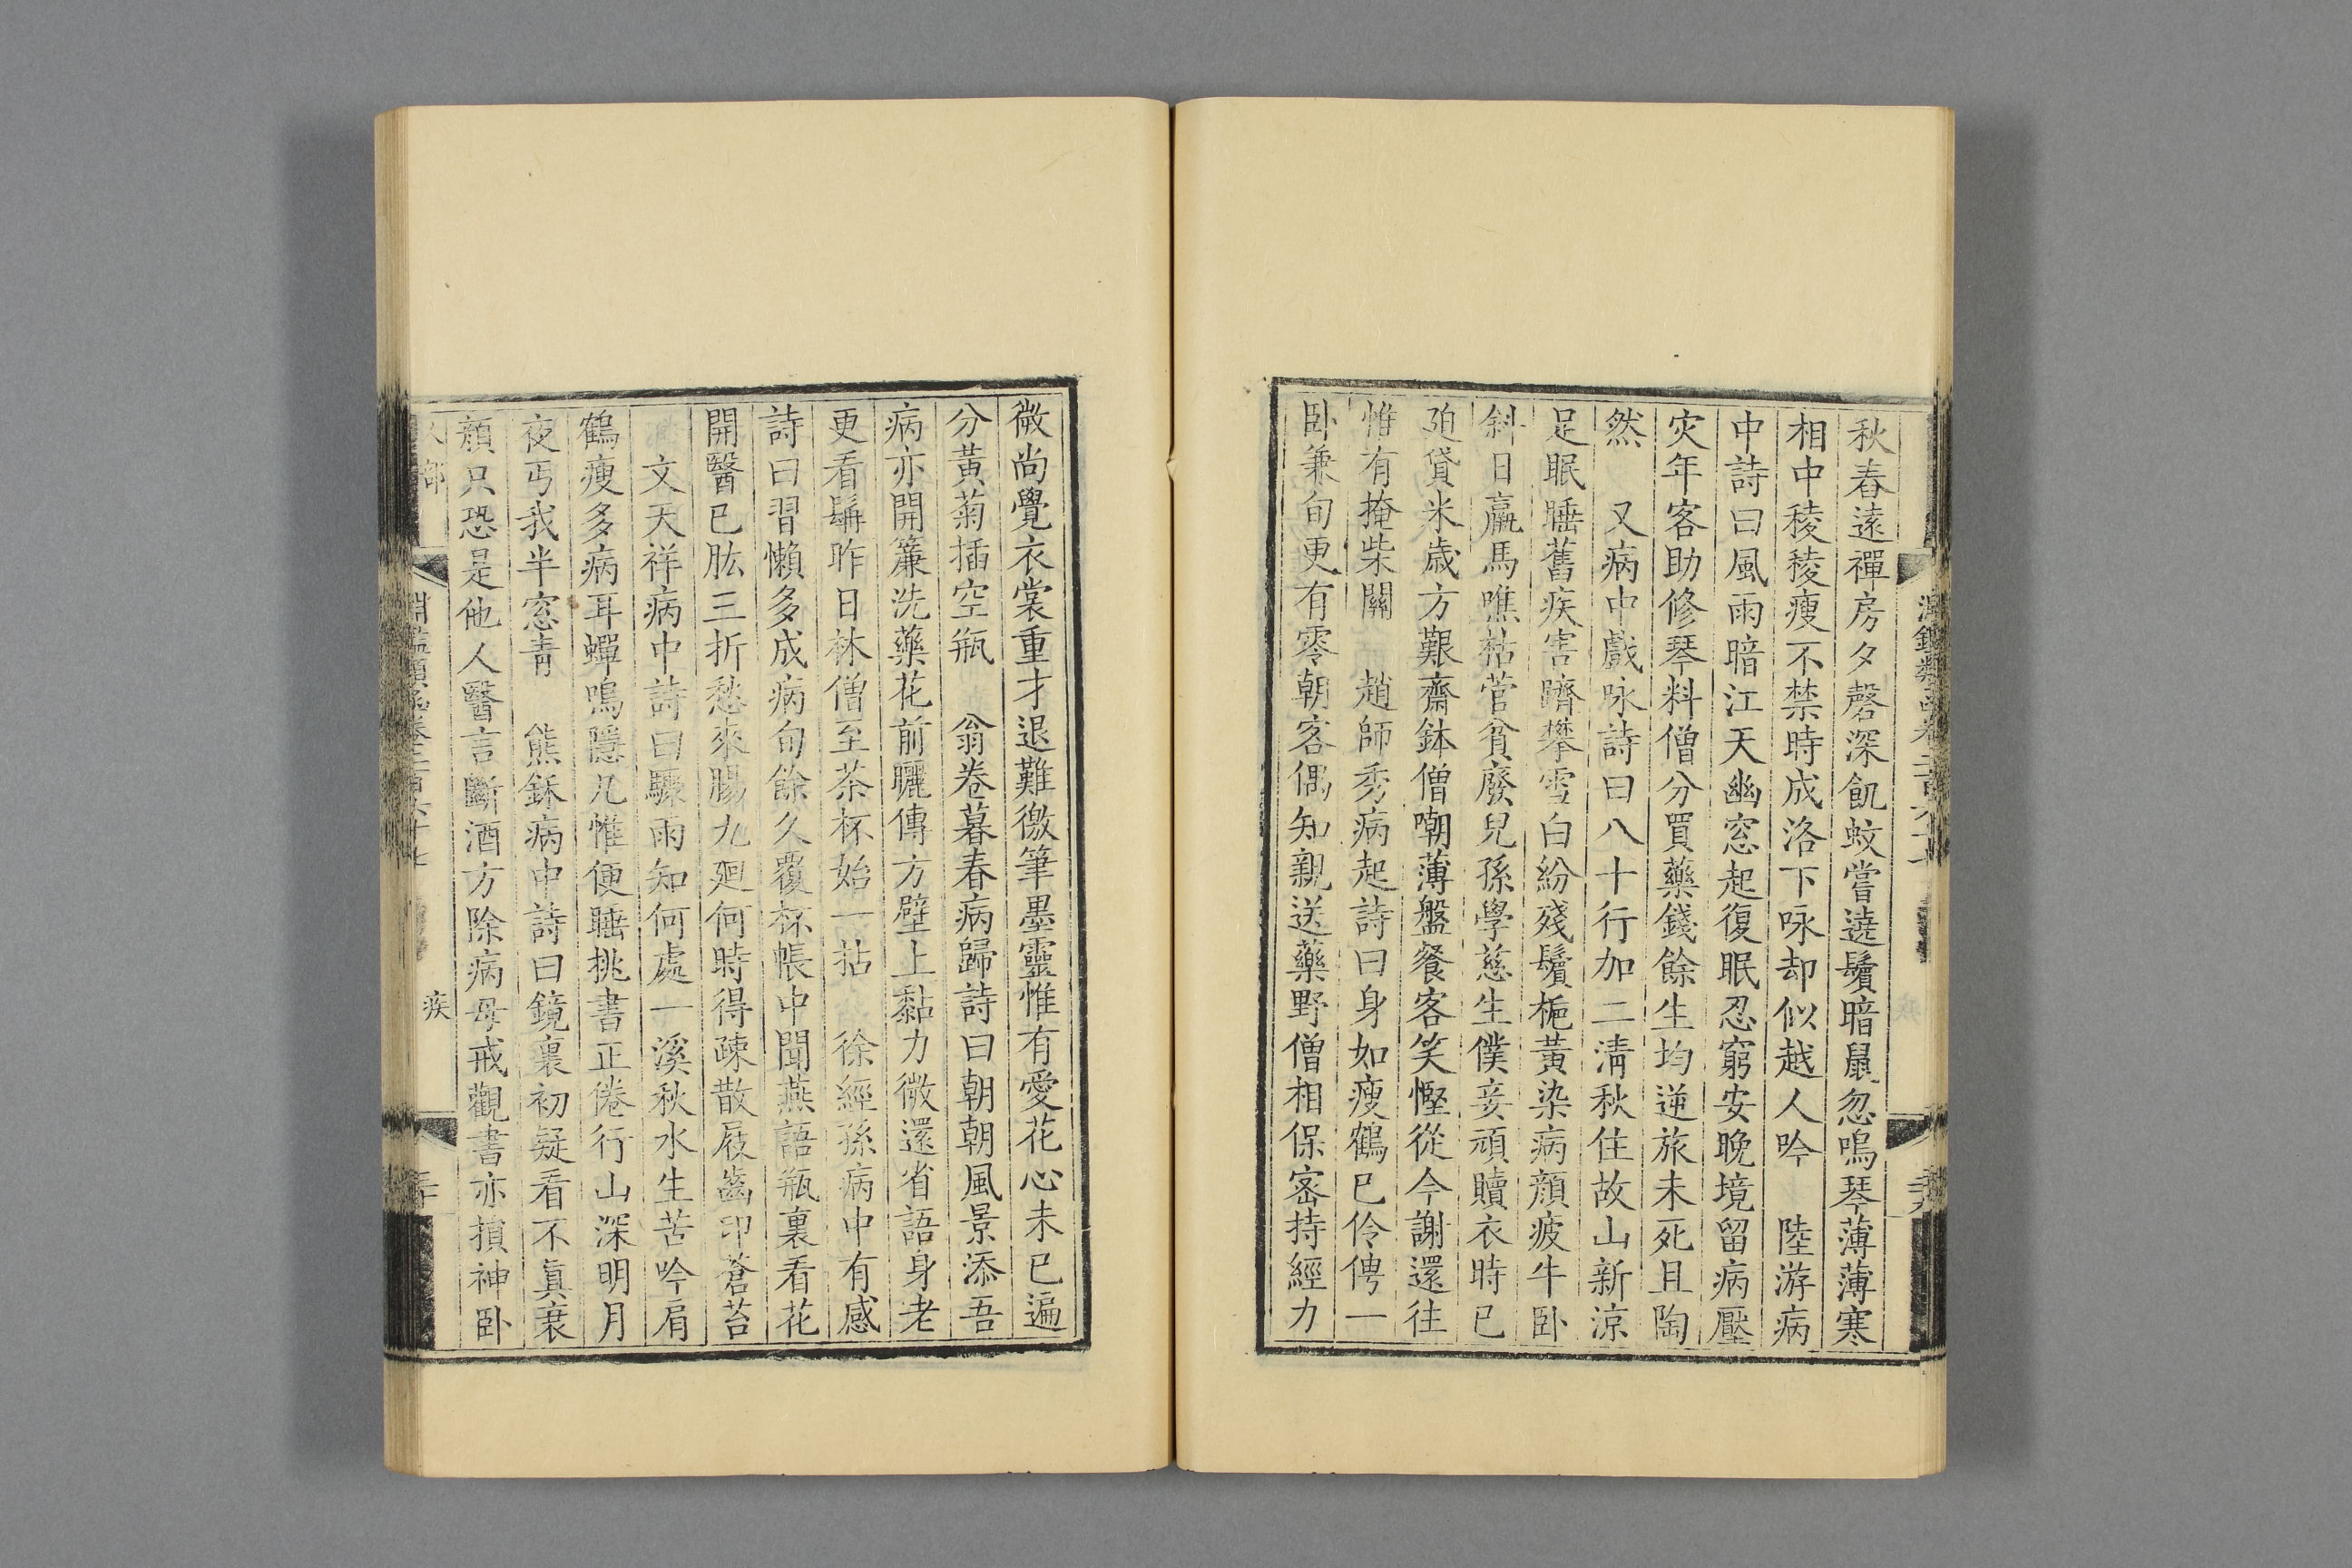 秋春遠禪房夕磬深飢蚊嘗遶鬢暗鼠忽鳴琴薄薄寒
相中稜稜瘦不禁時成洛下咏却似越人吟　陸游病
中詩曰風雨暗江天幽窓起復眠忍窮安晚境留病壓
灾年客助修琴料僧分買藥錢餘生均逆旅未死且陶
然　又病中戲咏詩曰八十行加二清秋住故山新涼
足眠睡舊疾害躋攀雪白紛殘鬢梔黃染病顏疲牛卧
斜日羸馬噍枯菅貧廢兒孫學慈生僕妾頑贖衣時已
廹貸米歲方艱齋鉢僧嘲薄盤餐客笑慳從今謝還往
惟有掩柴關　趙師秀病起詩曰身如瘦鶴已伶俜一
卧兼旬更有零朝客偶知親送藥野僧相保密持經力
微尚覺衣裳重才退難徼筆墨靈惟有愛花心未已遍
分黃菊插空瓶　翁卷暮春病歸詩曰朝朝風景添吾
病亦開簾洗藥花前曬傳方壁上黏力微還省語身老
更看髥昨日林僧至茶杯始一拈　徐經孫病中有感
詩曰習懶多成病旬餘久覆杯帳中聞燕語瓶裏看花
開醫已肱三折愁來腸九廻何時得疎散屐齒印蒼苔
文天祥病中詩曰驟雨知何處一溪秋水生苦吟肩
鶴瘦多病耳蟬鳴隱几惟便睡挑書正倦行山深明月
夜丐我半窓青　熊鉌病中詩曰鏡裏初疑看不眞衰
顏只恐是他人醫言斷酒方除病母戒觀書亦損神卧
疾